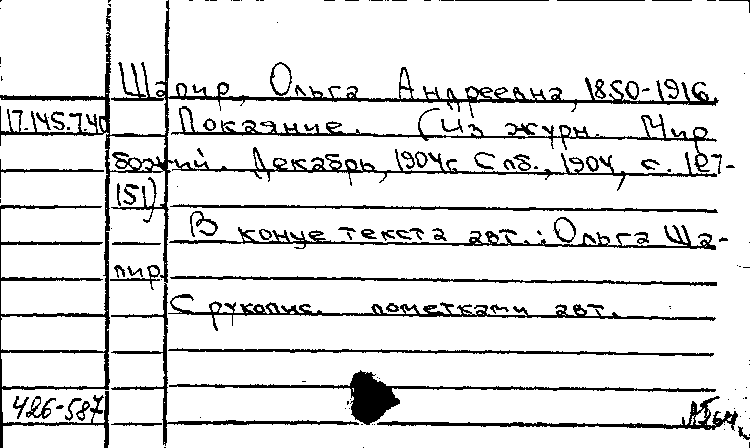 Шапир, Ольга Андреевна, 1850-1916.
17.145.7.40 Покаяние. (Из журн. Мир
божий. Декабрь, 1904г Спб., 1904, с. 127-
151).
В конце текста авт.: Ольга Ша-
пир.
С рукопис. пометками авт.
426-587